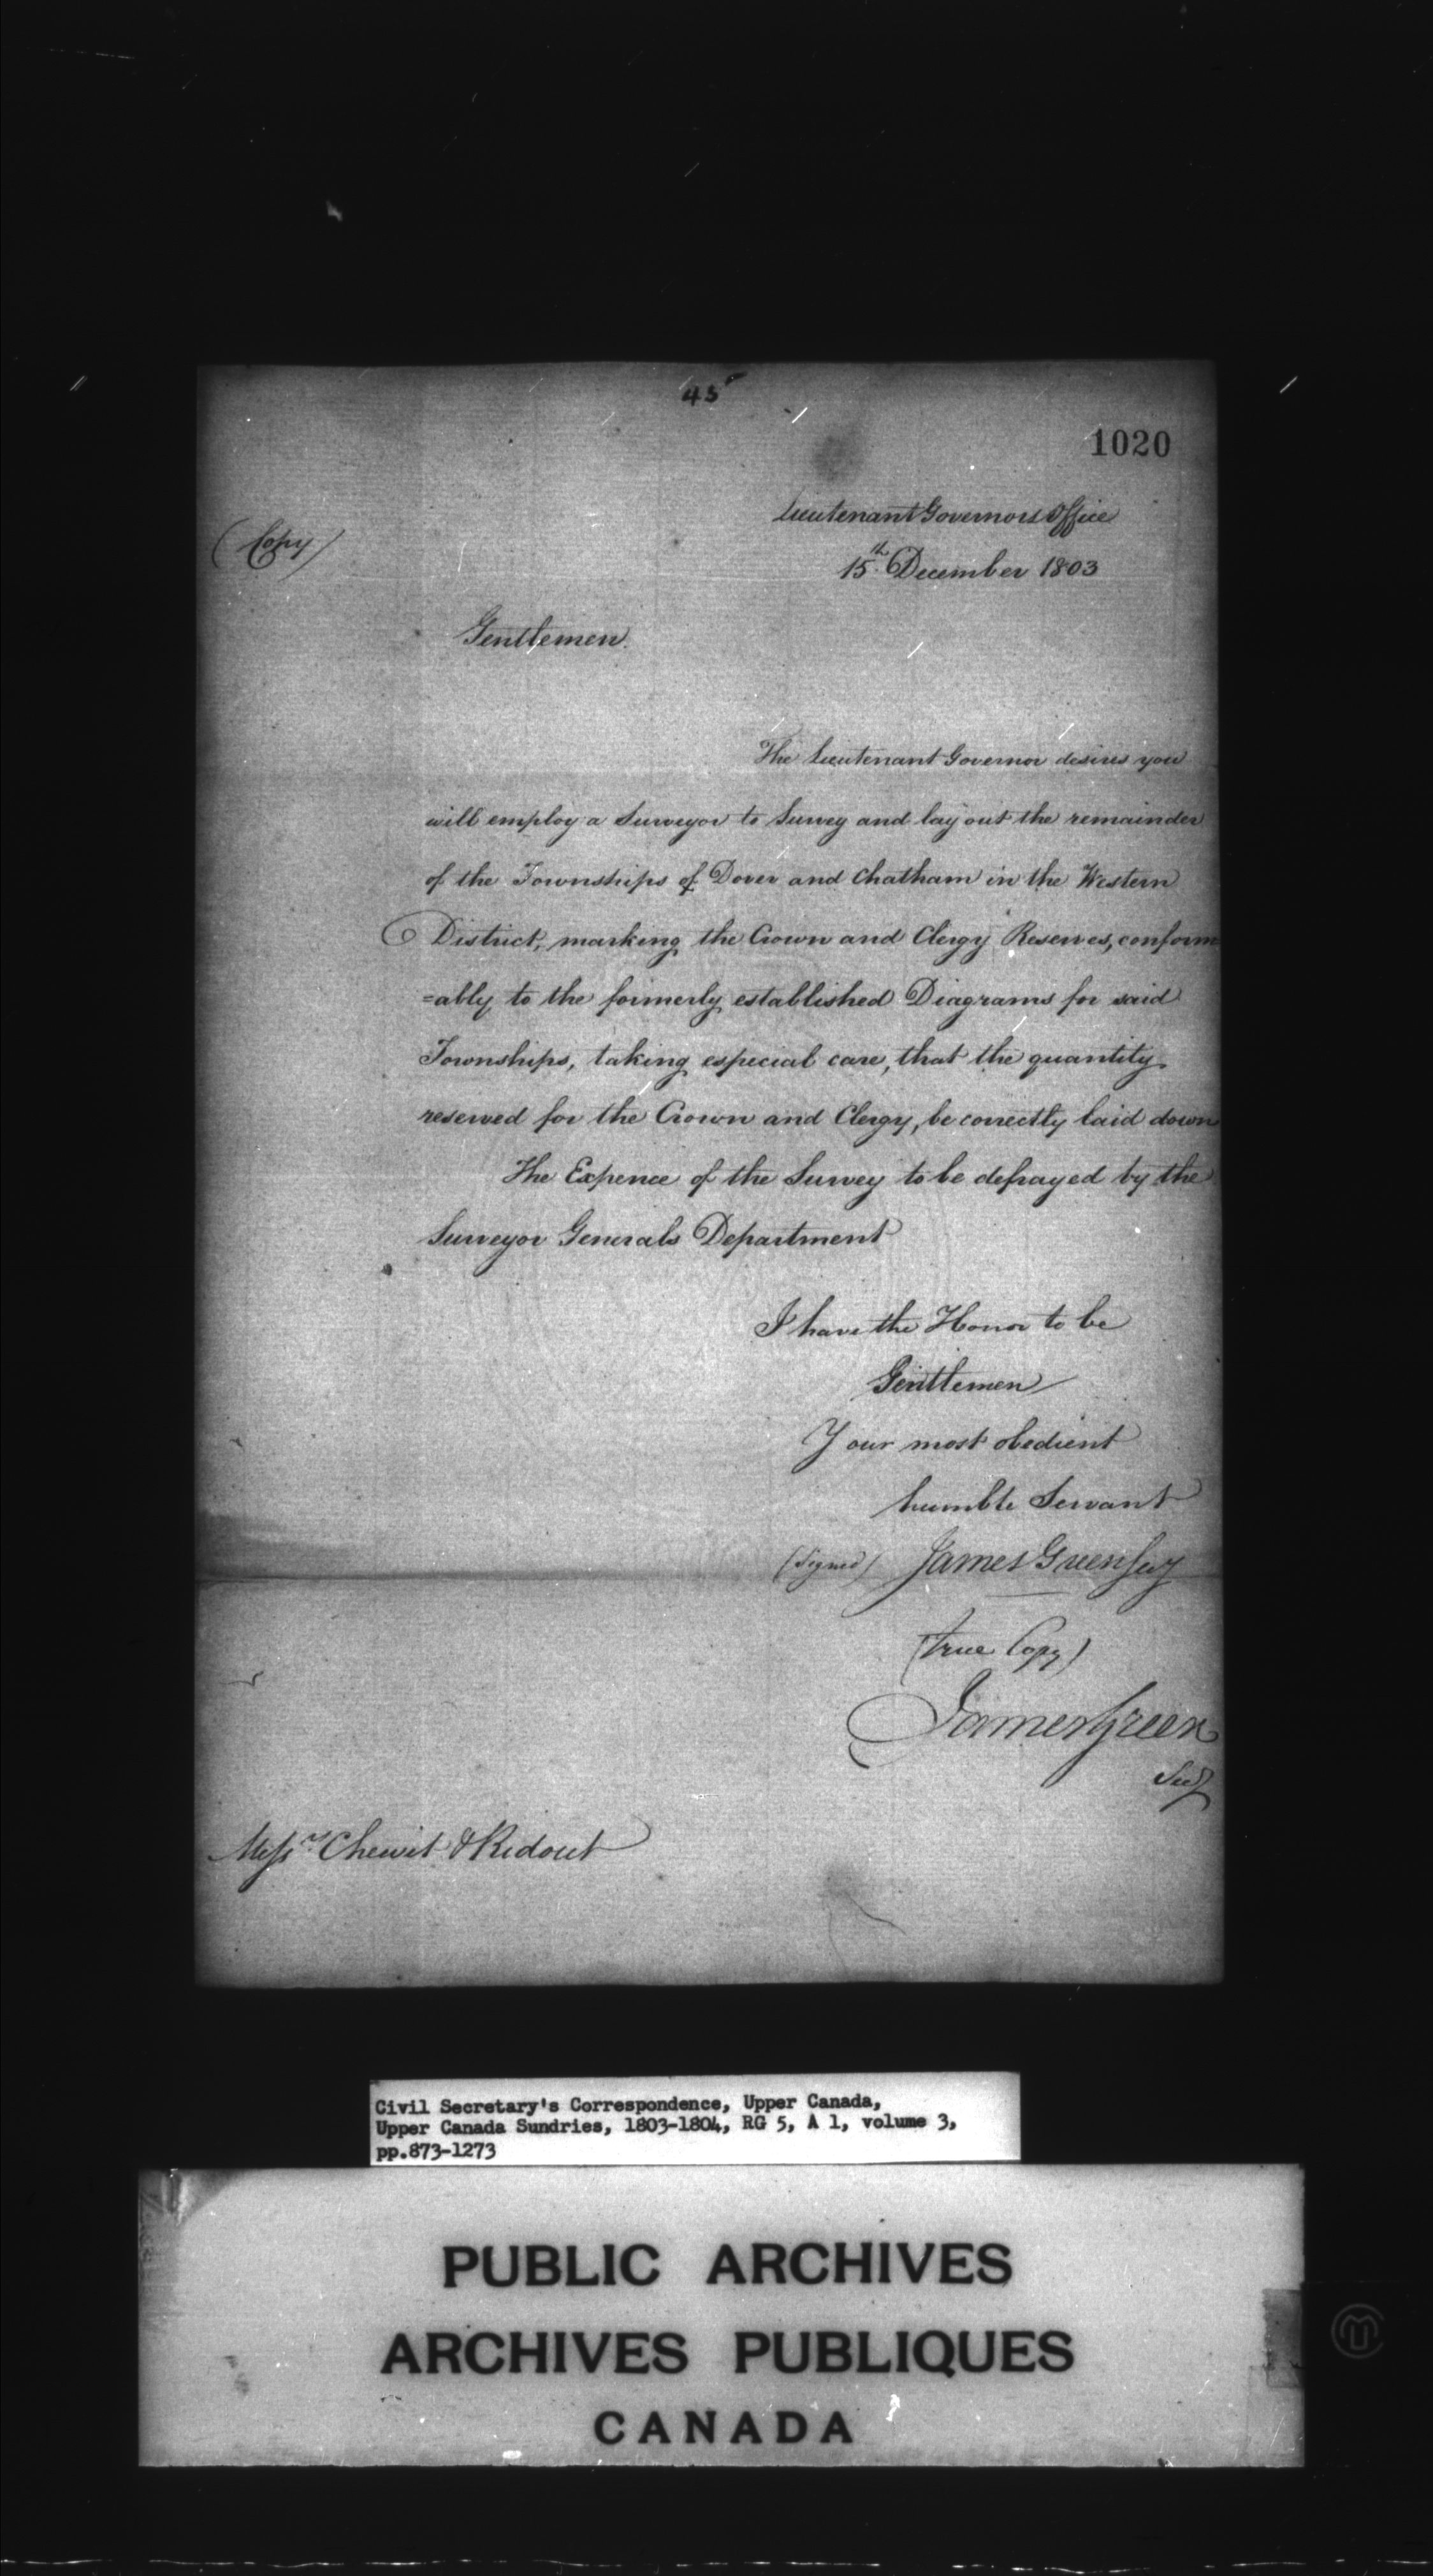 45
1020
(Copy)
Lieutenant Governors Office
15th December 1803
Gentlemen.
The Lieutenant Governor desires you
will employ a Surveyor to Survey and lay out the remainder
of the Townships of Dover and Chatham in the Western
District, marking the Crown and Clergy Reserves, conform
=ably to the formerly established Diagrams for said
Townships, taking especial care, that the quantity
reserved for the Crown and Clergy, be correctly laid down
The Expence of the Survey to be defrayed by the
Surveyor Generals Department
I have the Honor to be
Gentlemen
Your most obedient
humble Servant
(Signed) James Green Secy
(true Copy)
James Green
Secy
Messrs Chewit & Ridout
Civil Secretary's Correspondence, Upper Canada,
Upper Canada Sundries, 1803-1804, RG 5, A 1, volume 3,
pp.873-1273
PUBLIC ARCHIVES
ARCHIVES PUBLIQUES
CANADA